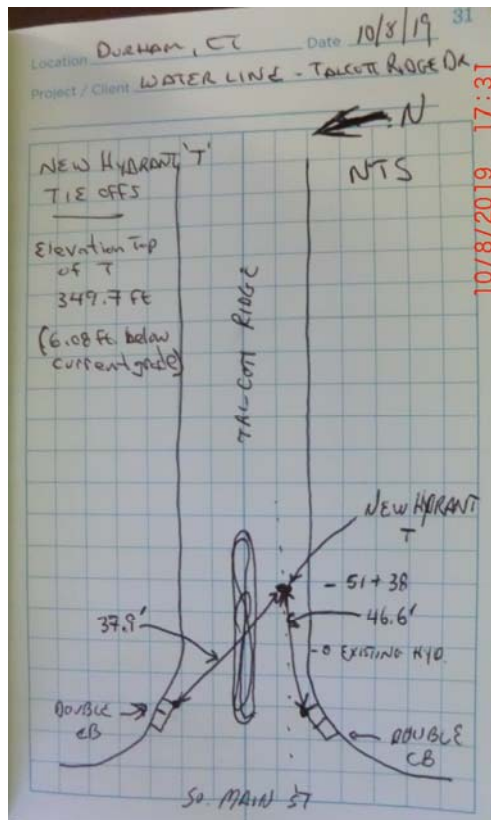 31
Location DURHAM, CT Date 10/8/19
Project / Client WATER LINE - TALCOTT RIDGE DR.
N
NEW HYDRANT 'T'
TIE OFFS
NTS
Elevation Top
of T
349.7 ft
(6.08 ft. below
current grade)
TALCOTT RIDGE
NEW HYDRANT
T
- 51+38
37.9'
46.6'
EXISTING HYD.
DOUBLE
CB
DOUBLE
CB
SO. MAIN ST
10/8/2019 17:31